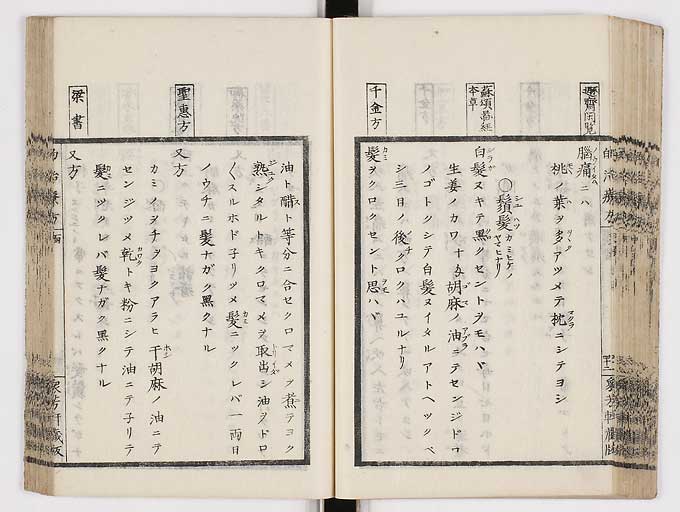 腦痛ニハ
桃ノ葉ヲ多クアツメテ枕ニシテヨシ
○鬚髮カミヒゲノヤマヒナリ
白髮ヌキテ黒クセントヲモハヾ
生姜ノカワ十匁胡麻ノ油ニテセンジドロ
ノゴトクシテ白髮ヌイタルアトヘツクベ
シ三日ノ後チクロクハユルナリ
千金方
髮ヲクロクセント思ハヾ
油ト醋ト等分ニ合セクロマメヲ煮テヨク
熟シタルトキクロマメヲ取出シ油ヲドロ
〱スルホド子リツメ髮ニツクレバ一兩日
ノウチニ髮ナガク黒クナル
聖惠方
又方
カミイヲチヲヨクアラヒ干胡麻ノ油ニテ
センジツメ乾トキ粉ニシテ油ニテ子リテ
髮ニツクレバ髮ナガク黒クナル
梁書
又方